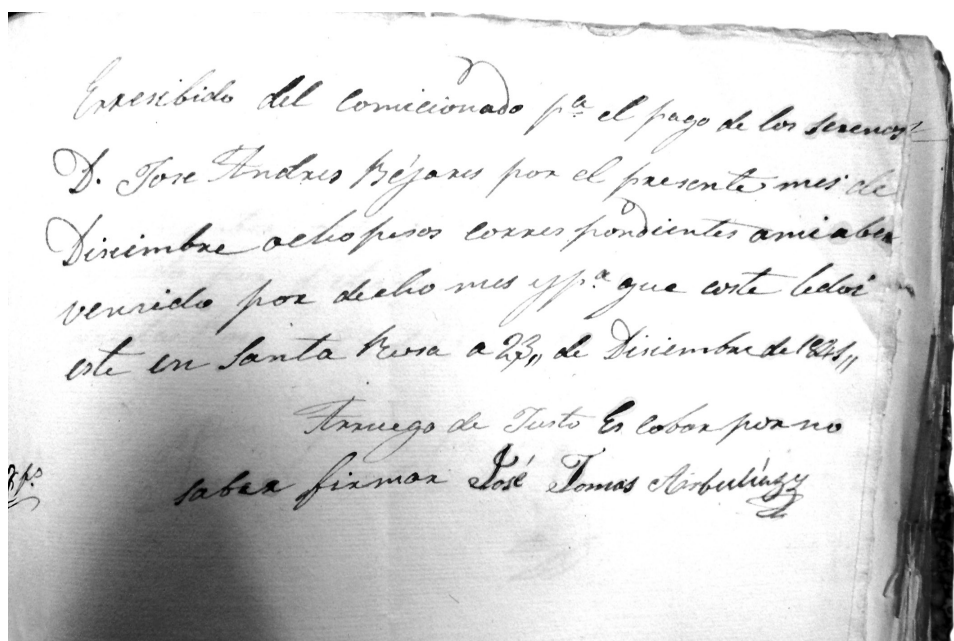 Erresibido del comicionado pa. el pago de los serenos
D. Jose Andres Béjares por el presente mes de
Disiembre ocho pesos correspondientes ami aber
vensido por decho mes y pa. que coste ledoi
este en Santa Rosa a 23,, de Disiembre de 1841,,
Arruego de Justo Escobar por no
saber firmar José Tomas
8 ps.